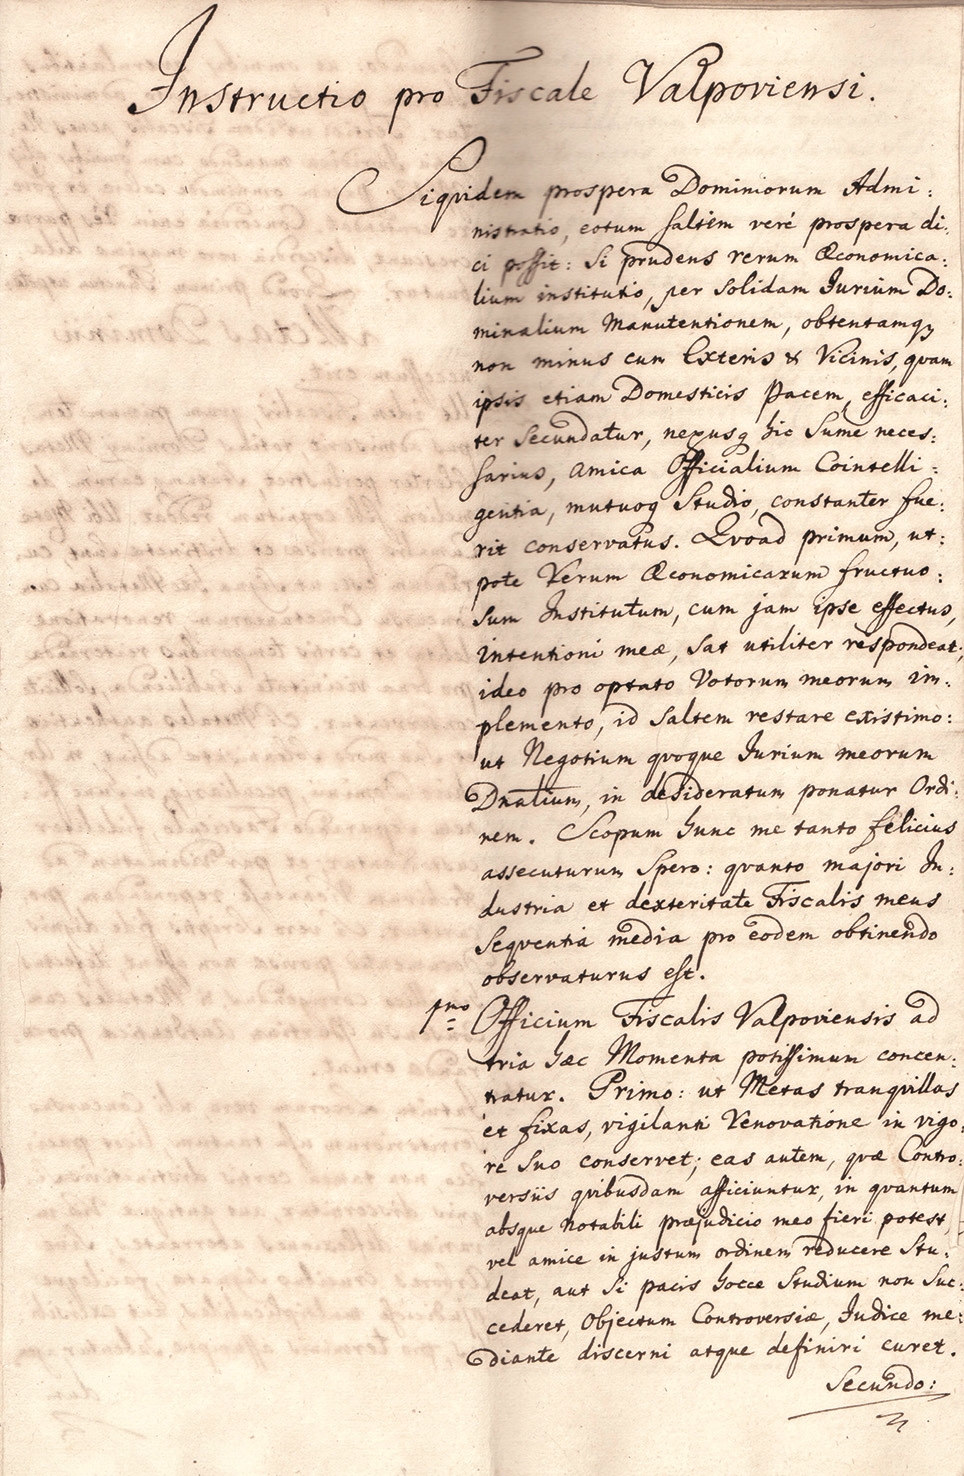 Instructio pro Fiscale Valpoviensi.
Siquidem prospera Dominiorum Admi:
nistratio, eotum saltèm veré prospera di:
ci possit: si prudens rerum Œconomica:
lium institutio, per solidam Jurium Do:
minalium Manutentionem, obtentamq
non minus cum Exteris & Vicinis, quam
ipsis etiam Domesticis Pacem, efficaci:
ter secundatur, nexusq hic sume neces:
sarius, amica Officialium Cointelli:
gentia, mutuoq Studio, constanter fue:
rit conservatus. Qvoad primum, ut:
pote Rerum Œconomicarum fructuo:
sum Institutum, cum jam ipse effectus,
intentioni meæ, sat utiliter respondeat;
ideo pro optato Votorum meorum im:
plemento, id saltem restare existimo:
ut Negotium quoque Jurium meorum
Dnalium, in desideratum ponatur Ordi:
nem. Scopum hunc me tanto felicius
assecuturum spero: quanto majori In:
dustria et dexteritate Fiscalis meus
seqventia media pro eodem obtinendo
observaturus est.
1mo Officium Fiscalis Valpoviensis ad
tria hæc Momenta potissimum concen:
tratur. Primo: ut Metas tranquillas
et fixas, vigilanti Renovatione in vigo:
re suo conservet; eas autem, quæ Contro:
versiis quibusdam afficiuntur, in quantum
absque notabili præjudicio meo fieri potest,
vel amice in justum ordinem reducere stu:
deat, aut si pacis hocce Studium non suc:
cederet, Objectum Controversiæ, Judice me:
diante discerni atque definiri curet.
Secundo: